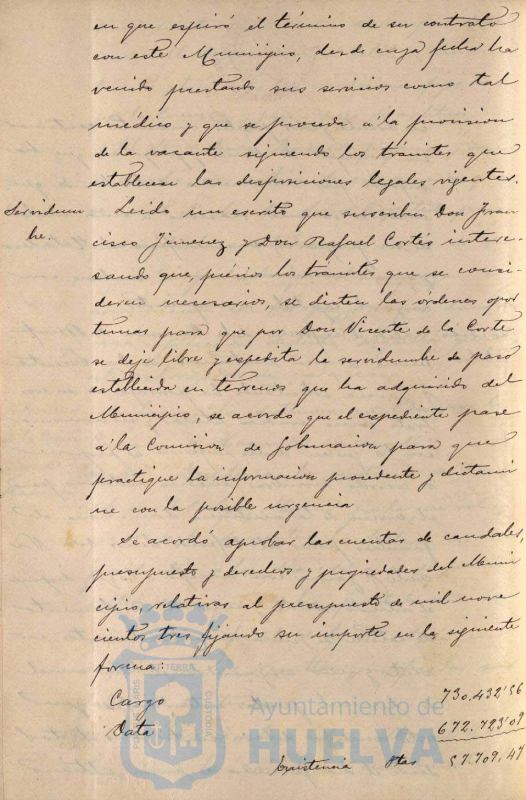 en que espiró el término de su contrato
con este Municipio, desde cuya fecha ha
venido prestando sus servicios como tal
médico y que se proceda á la provision
de la vacante siguiendo los trámites que
establecen las disposiciones legales vigentes.
Servidum
bre.
Leido un escrito que suscriben Don Fran
cisco Jimenez y Don Rafael Cortés intere-
sando que, prévios los trámites que se consi
deren necesarios, se dicten las órdenes opor
tunas para que por Don Vicente de la Corte
se deje libre y espedita la servidumbre de paso
establecida en terrenos que ha adquirido del
Municipio, se acordo que el expediente pase
á la Comision de Gobernacion para que
practique la informacion procedente y dictami
ne con la posible urgencia
Se acordó aprobar las cuentas de caudales,
presupuesto y derechos y propiedades del Muni
cipio, relativas al presupuesto de mil nove
cientos tres fijando su importe en la siguiente
forma:
Cargo 730.432'56
Data 672.723'09
Existencia Ptas 57.709,47
Ayuntamiento de
HUELVA